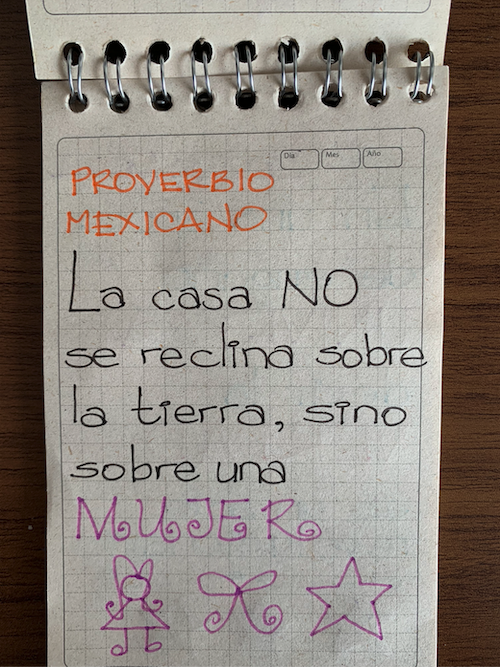 Día Mes Año
PROVERBIO
MEXICANO
La casa NO
se reclina sobre
la tierra, sino
sobre una
MUJER